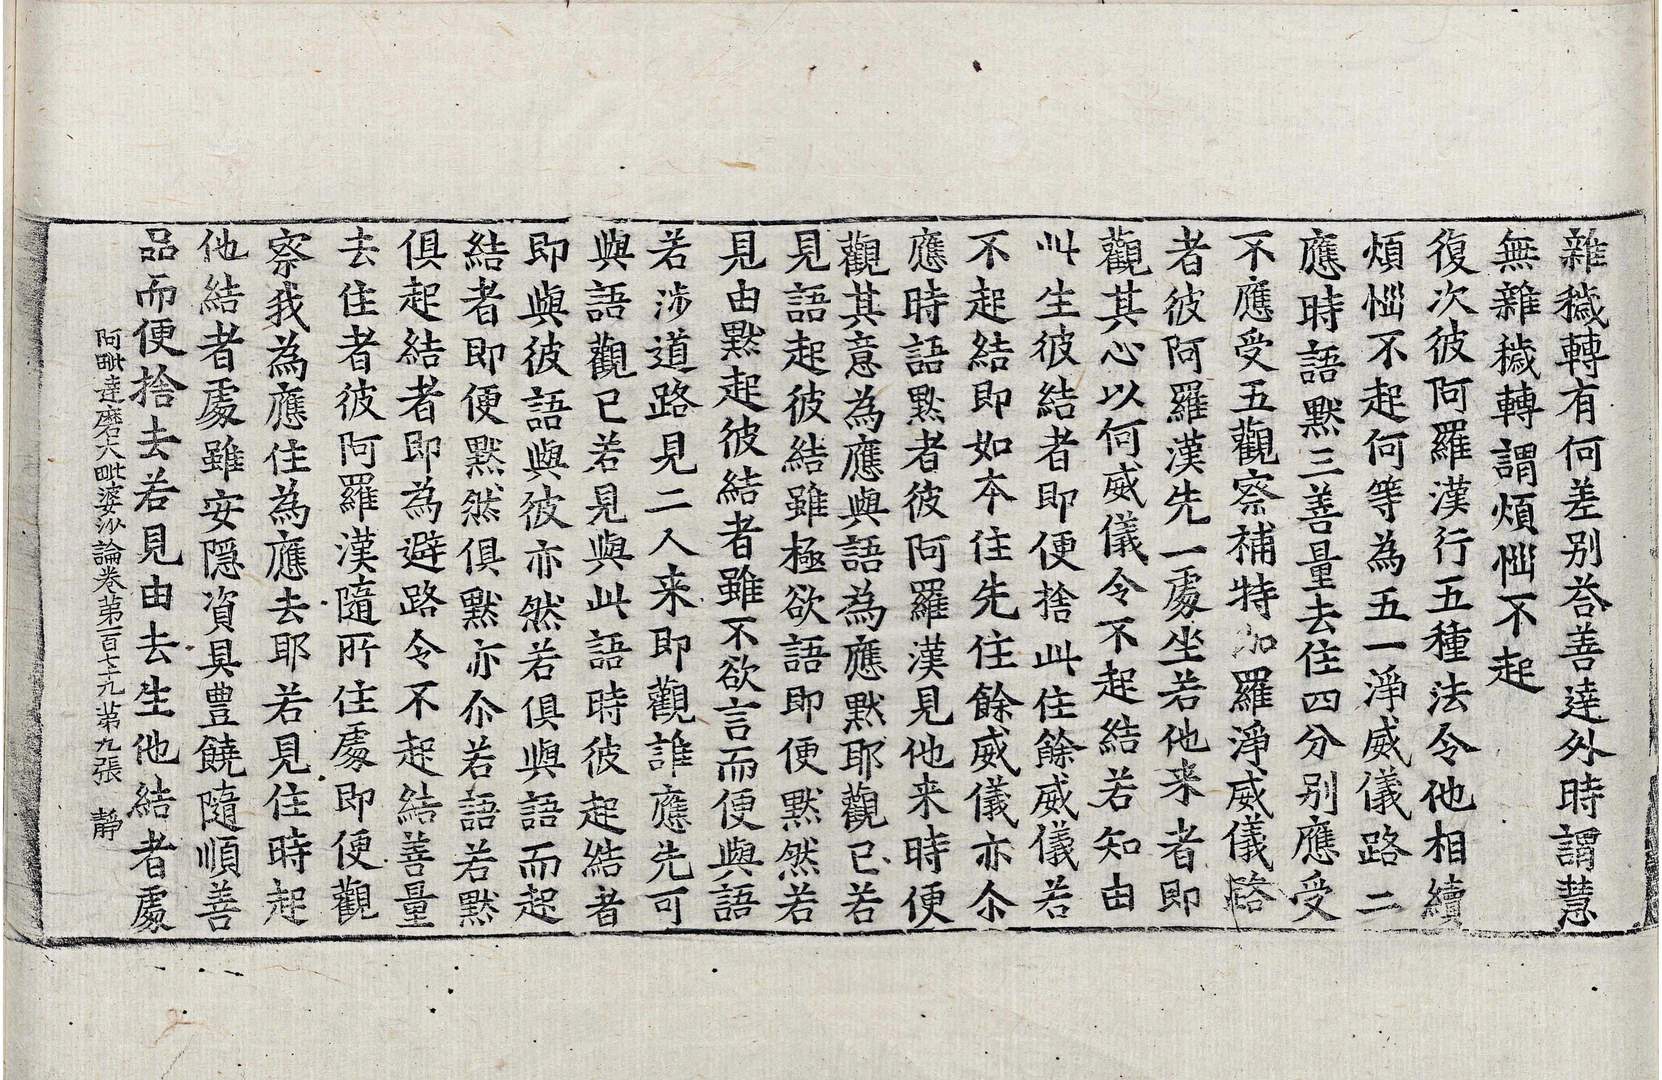 雜穢轉有何差别荅善達外時謂慧
無雜穢轉謂煩惱不起
復次彼阿羅漢行五種法令他相續
煩惱不起何等為五一淨威儀路二
應時語默三善量去住四分别應受
不應受五觀察補特伽羅淨威儀路
者彼阿羅漢先一處坐若他来者即
觀其心以何威儀令不起結若知由
此生彼結者即便捨此住餘威儀若
不起結即如本住先住餘威儀亦尒
應時語默者彼阿羅漢見他来時便
觀其意為應與語為應默耶觀已若
見語起彼結雖極欲語即便默然若
見由默起彼結者雖不欲言而便與語
若涉道路見二人来即觀誰應先可
與語觀已若見與此語時彼起結者
即與彼語與彼亦然若俱與語而起
結者即便默然俱默亦尒若語若默
俱起結者即為避路令不起結善量
去住者彼阿羅漢隨所住處即便觀
察我為應住為應去耶若見住時起
他結者處雖安隱資具豊饒隨順善
品而便捨去若見由去生他結者處
阿毗達磨大毗婆沙論卷第一百七十九 第九張 靜